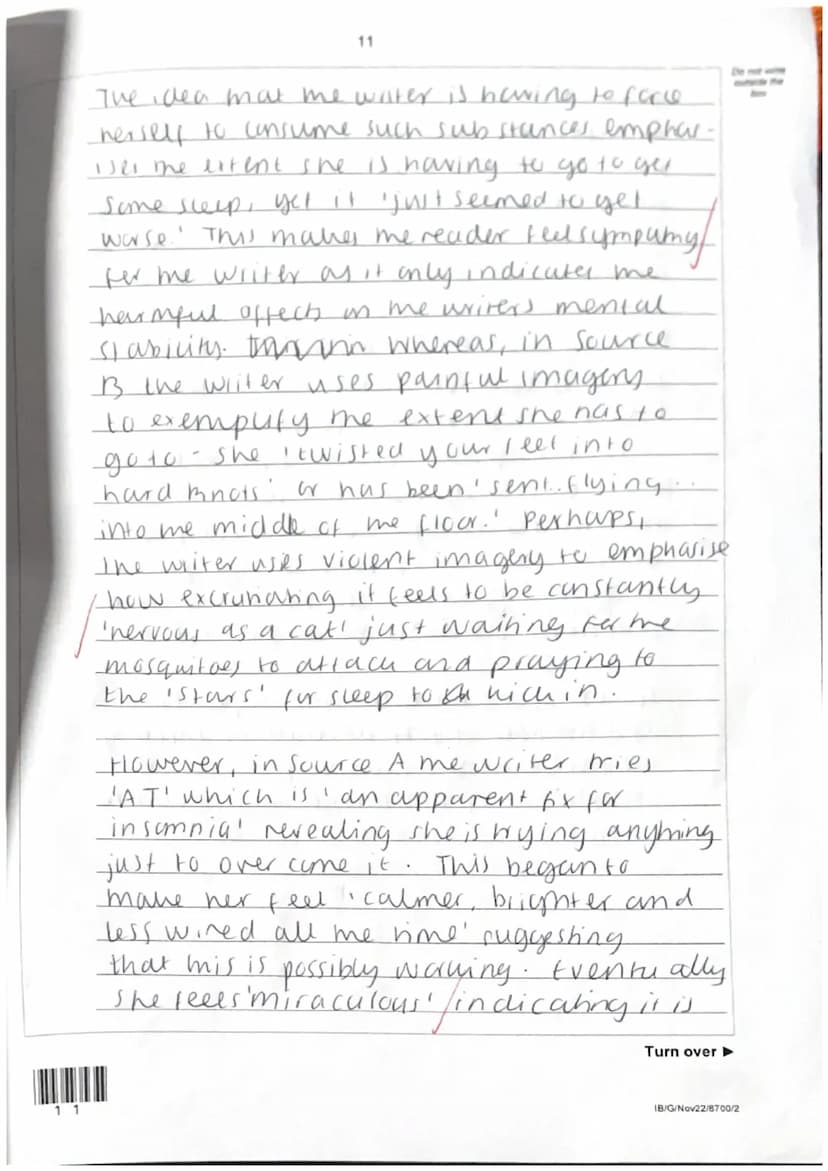 11
Do not write
outside the
box
The idea that the writer is having to force
herself to consume such substances emphas-
ises the extent she is having to go to get
some sleep, yet it 'just seemed to get
worse.' This makes the reader feel sympathy
for the writer as it only indicates the
harmful affects on the writers mental
stability. Whereas, in source
B the writer uses painful imagery
to exemplify the extent she has to
go to - she 'twisted your feet into
hard knots' or has been 'sent.. flying...
into the middle of the floor.' Perhaps,
the writer uses violent imagery to emphasise
how excruhating it feels to be constantly
'nervous as a cat' just waiting for the
mosquitoes to attack and praying to
the 'stars' for sleep to kick in.
However, in source A the writer tries
'AT' which is 'an apparent fix for
insomnia' revealing she is trying anything
just to over come it. This began to
make her feel 'calmer, brighter and
less wired all the time' suggesting
that this is possibly working. Eventually
she feels 'miraculous' indicating it is
Turn over ►
1 1
IB/G/Nov22/8700/2